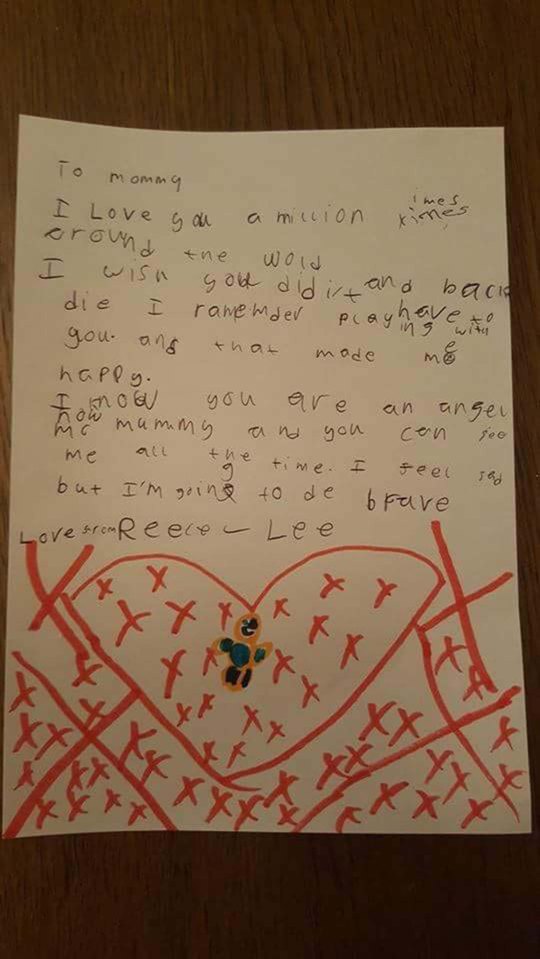 To mommy
I Love you a million times ximes
around the wold
I wish you did irt and back
die I ramemder playing have to with
you. and that made me
happy.
I know you are an angel
now mummy and you can see
me all the time. I feel sad
but I'm going to de brave
Love from Reece - Lee